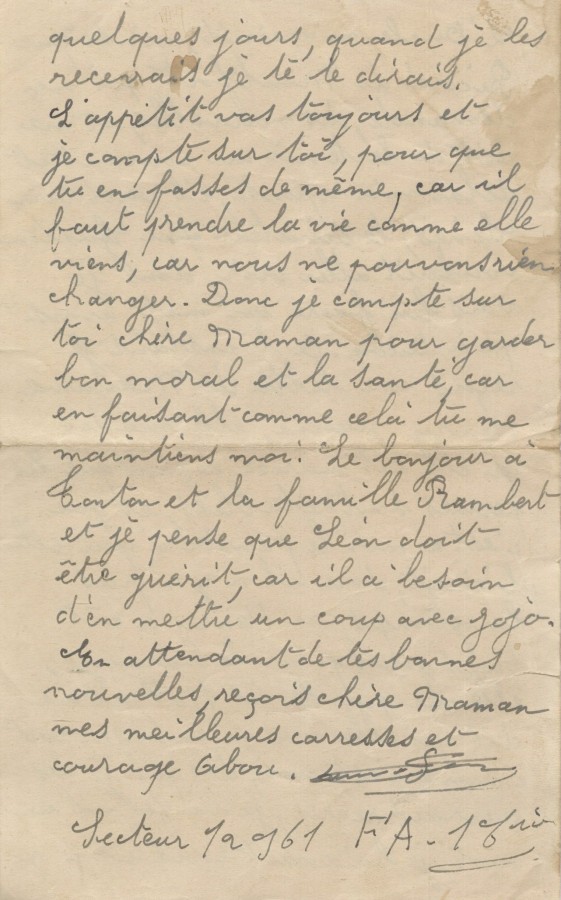 quelques jours, quand je les
recevrais je te le dirais.
L'appétit vas toujours et
je compte sur toi, pour que
tu en fasses de même, car il
faut prendre la vie comme elle
viens, car nous ne pouvons rien
changer. Donc je compte sur
toi chère Maman pour garder
bon moral et la santé, car
en faisant comme cela tu me
maintiens moi. Le bonjour à
Tonton et la famille Rambert
et je pense que Léon doit
être guérit, car il à besoin
d'en mettre un coup avec Jojo.
En attendant de tes bonnes
nouvelles, reçois chère Maman
mes meilleures carresses et
courage
Secteur 12961 F A - 1